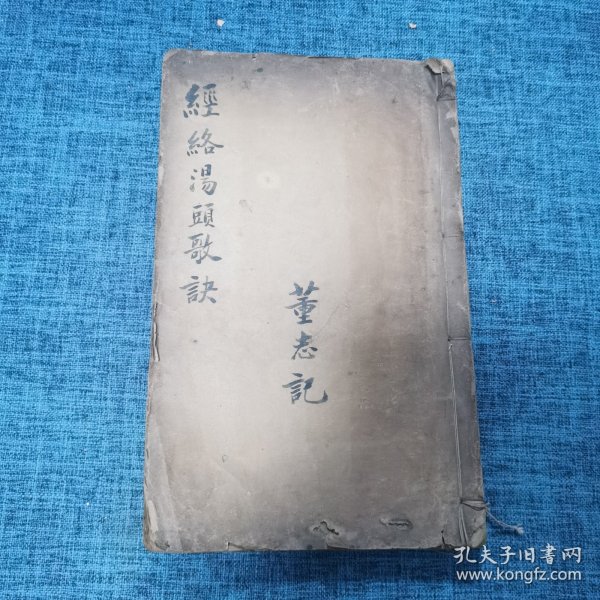 經絡湯頭歌訣
董志記
孔夫子旧书网
www.kongfz.com